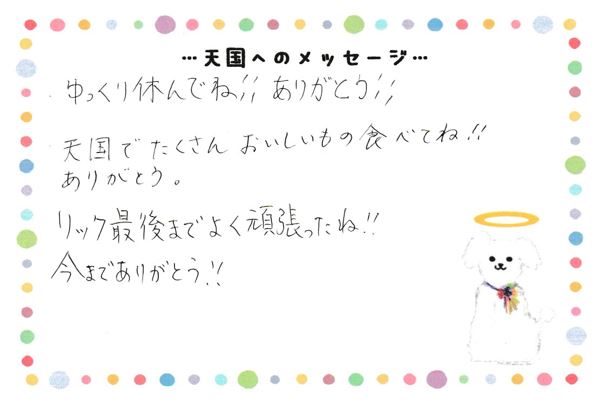 …天国へのメッセージ…
ゆっくり休んでね!! ありがとう!!
天国でたくさんおいしいもの食べてね!!
ありがとう。
リック最後までよく頑張ったね!!
今までありがとう!!